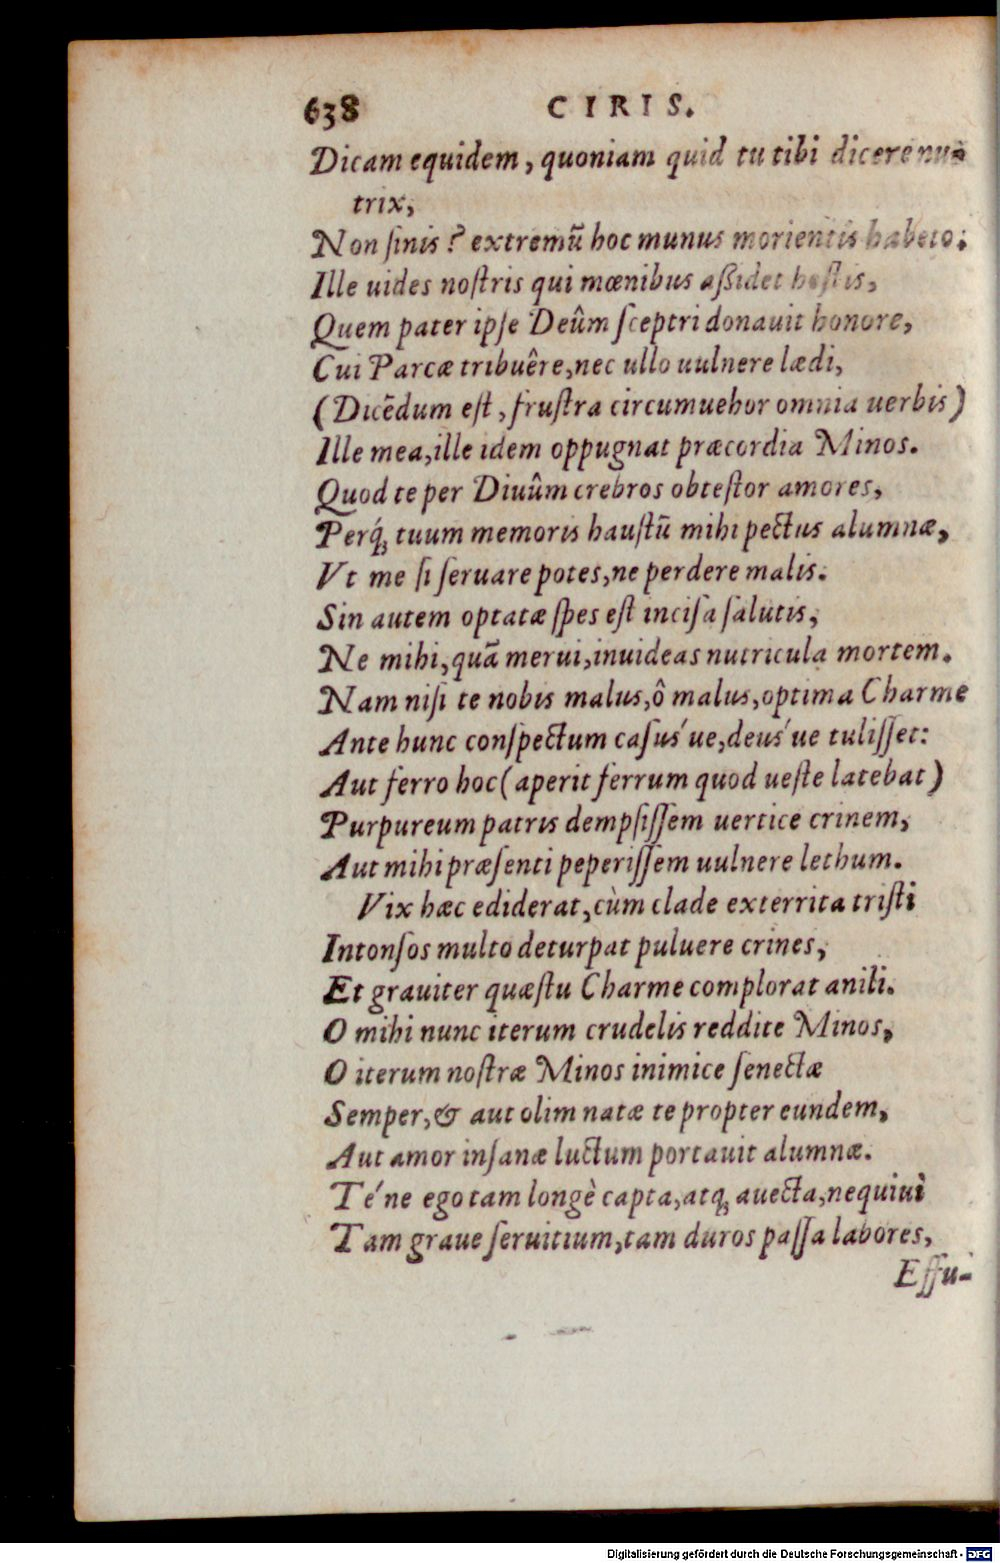 638 CIRIS.
Dicam equidem, quoniam quid tu tibi dicere nu-
trix,
Non ſinis? extremū hoc munus morientis habeto:
Ille uides noſtris qui mœnibus aßidet hoſtis,
Quem pater ipſe Deûm ſceptri donauit honore,
Cui Parcæ tribuêre, nec ullo uulnere lædi,
(Dicēdum eſt, fruſtra circumuehor omnia uerbis)
Ille mea, ille idem oppugnat præcordia Minos.
Quod te per Diuûm crebros obteſtor amores,
Perq́; tuum memoris hauſtū mihi pectus alumnæ,
Vt me ſi ſeruare potes, ne perdere malis.
Sin autem optatæ ſpes eſt inciſa ſalutis,
Ne mihi, quā merui, inuideas nutricula mortem.
Nam niſi te nobis malus, ô malus, optima Charme
Ante hunc conſpectum caſus´ue, deus´ue tuliſſet:
Aut ferro hoc (aperit ferrum quod ueſte latebat)
Purpureum patris dempſiſſem uertice crinem,
Aut mihi præſenti peperiſſem uulnere lethum.
Vix hæc ediderat, cùm clade exterrita triſti
Intonſos multo deturpat puluere crines,
Et grauiter quæſtu Charme complorat anili.
O mihi nunc iterum crudelis reddite Minos,
O iterum noſtræ Minos inimice ſenectæ
Semper, & aut olim natæ te propter eundem,
Aut amor inſanæ luctum portauit alumnæ.
Té´ne ego tam longè capta, atq; auecta, nequiui
Tam graue ſeruitium, tam duros paſſa labores,
Effu-
Digitalisierung gefördert durch die Deutsche Forschungsgemeinschaft - DFG